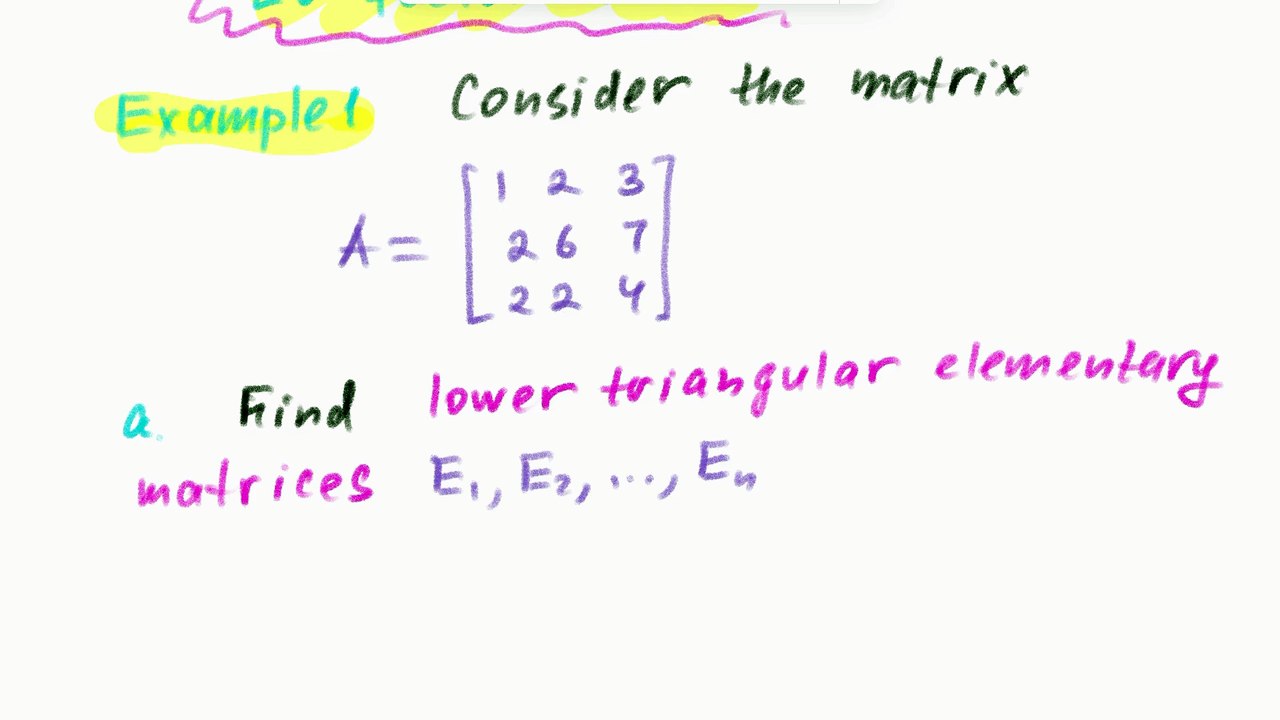 Example 1 Consider the matrix
A = [ 1 2 3
2 6 7
2 2 4 ]
a. Find lower triangular elementary
matrices E₁, E₂, ..., Eₙ